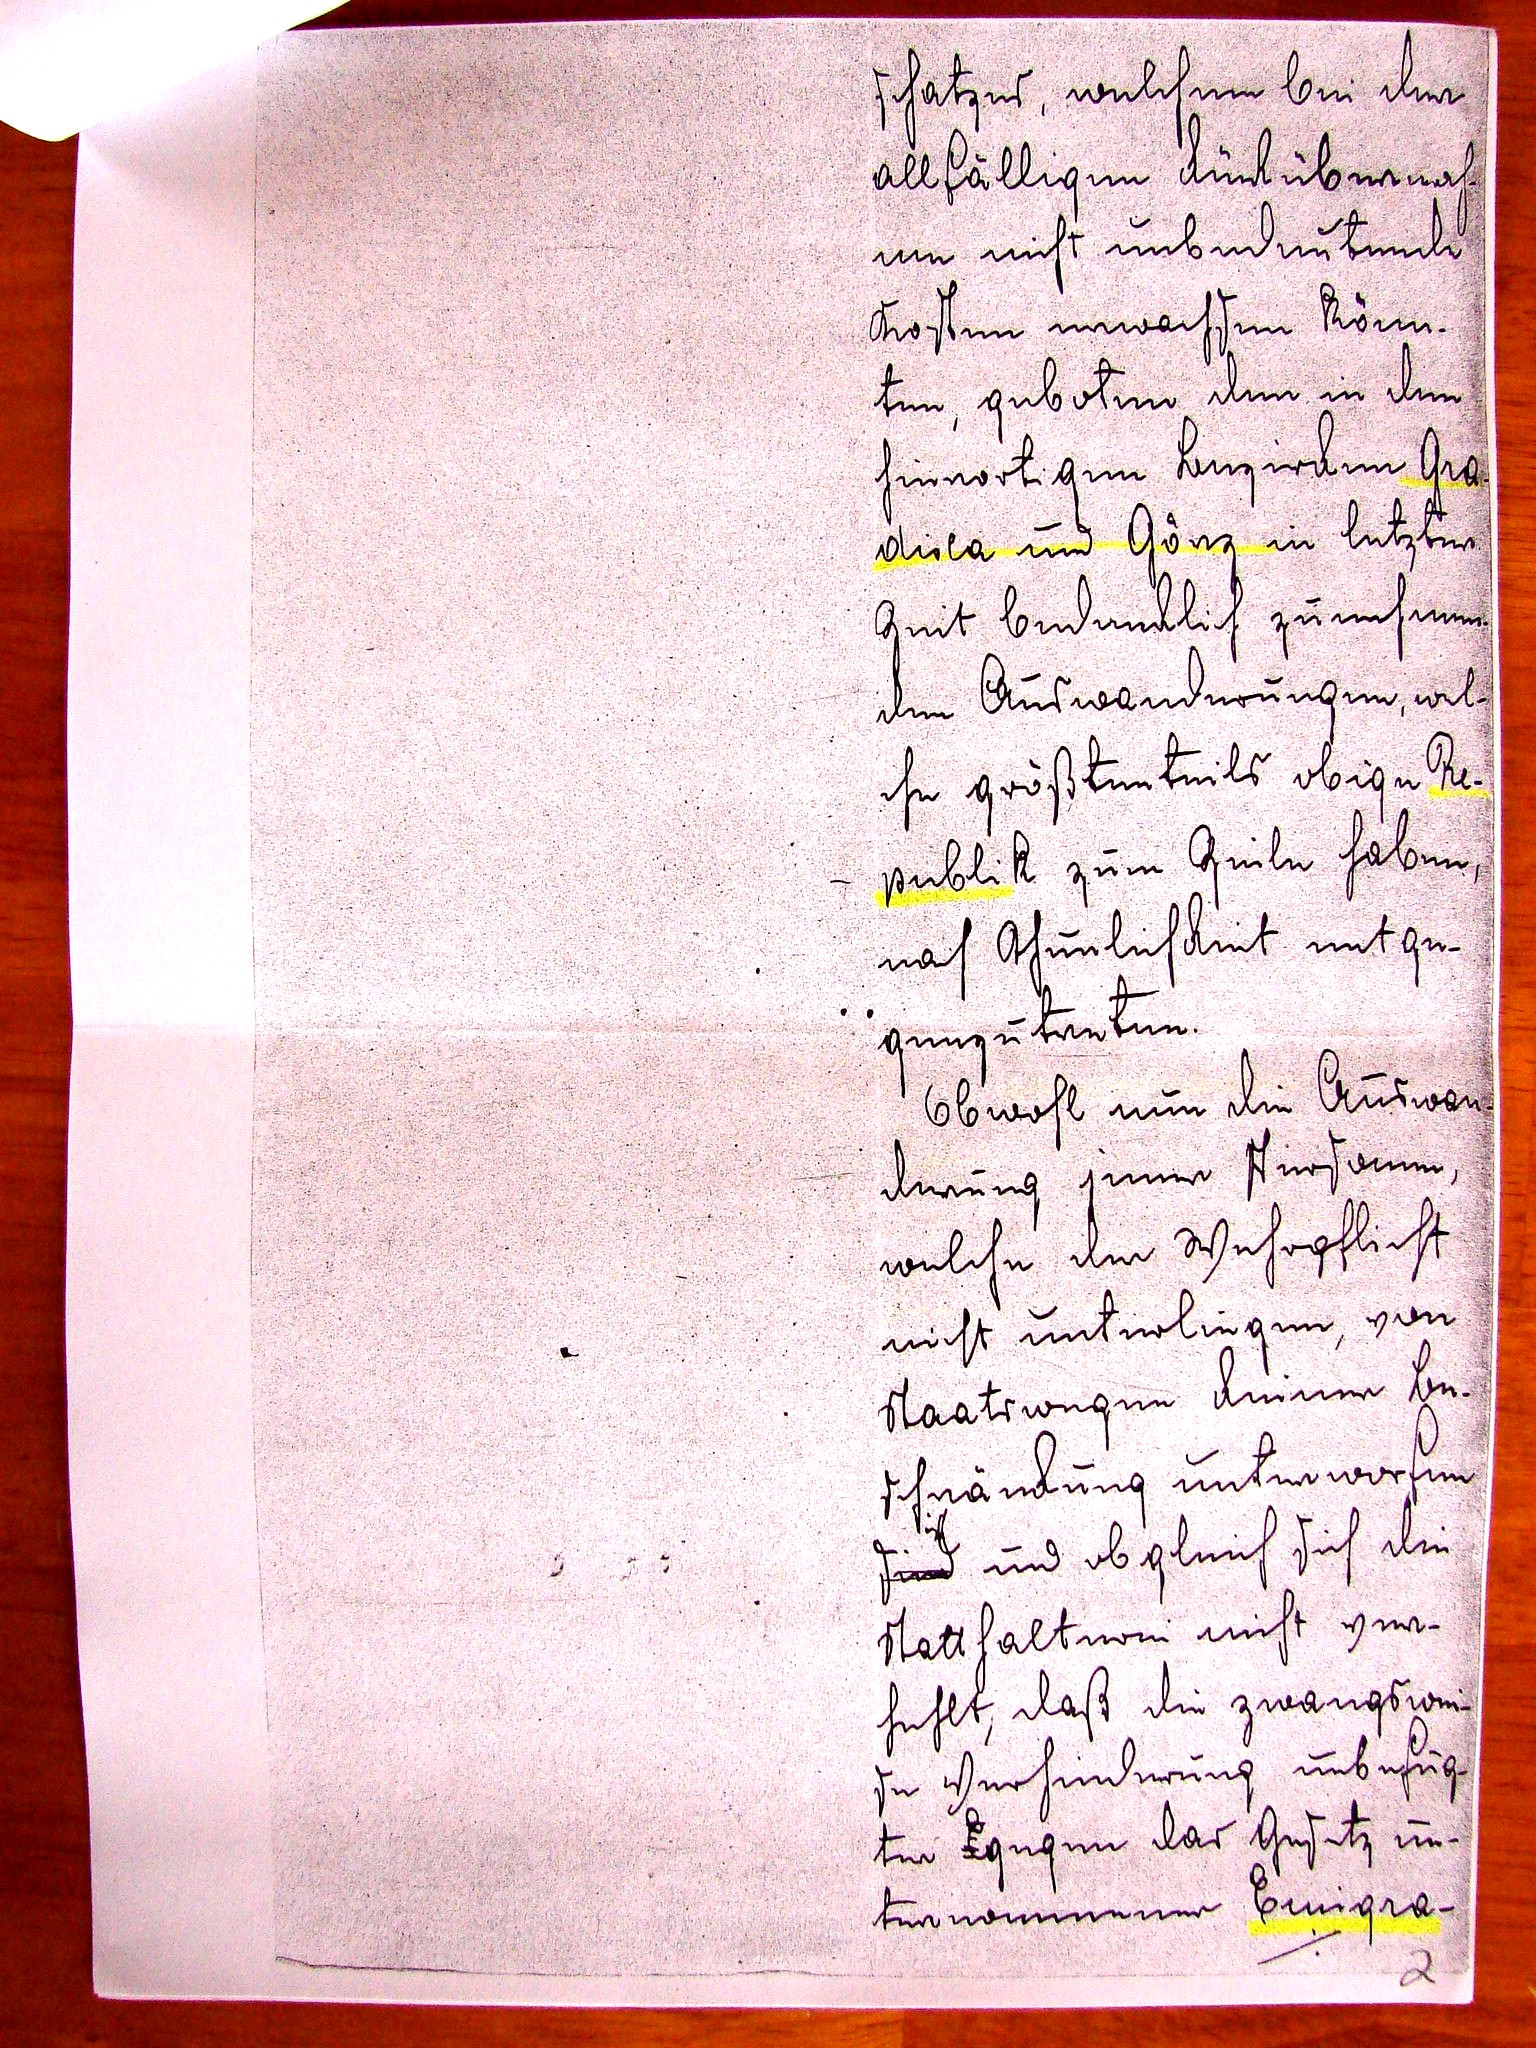 schatzes, welchem bei der
allfälligen Rückübernah-
me nicht unbedeutende
Kosten erwachsen könn-
ten, geboten den in den
hierortigen Bezirken Gra-
disca und Görz in letzter
Zeit bedenklich zunehmen-
den Auswanderungen, wel-
che größtenteils obige Re-
publik zum Ziele haben,
nach Thunlichkeit entge-
genzutreten.
Obwohl nun die Auswan-
derung jener Personen,
welche der Wehrpflicht
nicht unterliegen, von
Staatswegen keiner Be-
schränkung unterworfen
ist und obgleich sich die
Statthalterei nicht ver-
hehlt, daß die zwangswei-
se Verhinderung unbefug-
ter gegen das Gesetz un-
ternommener Emigra-
2